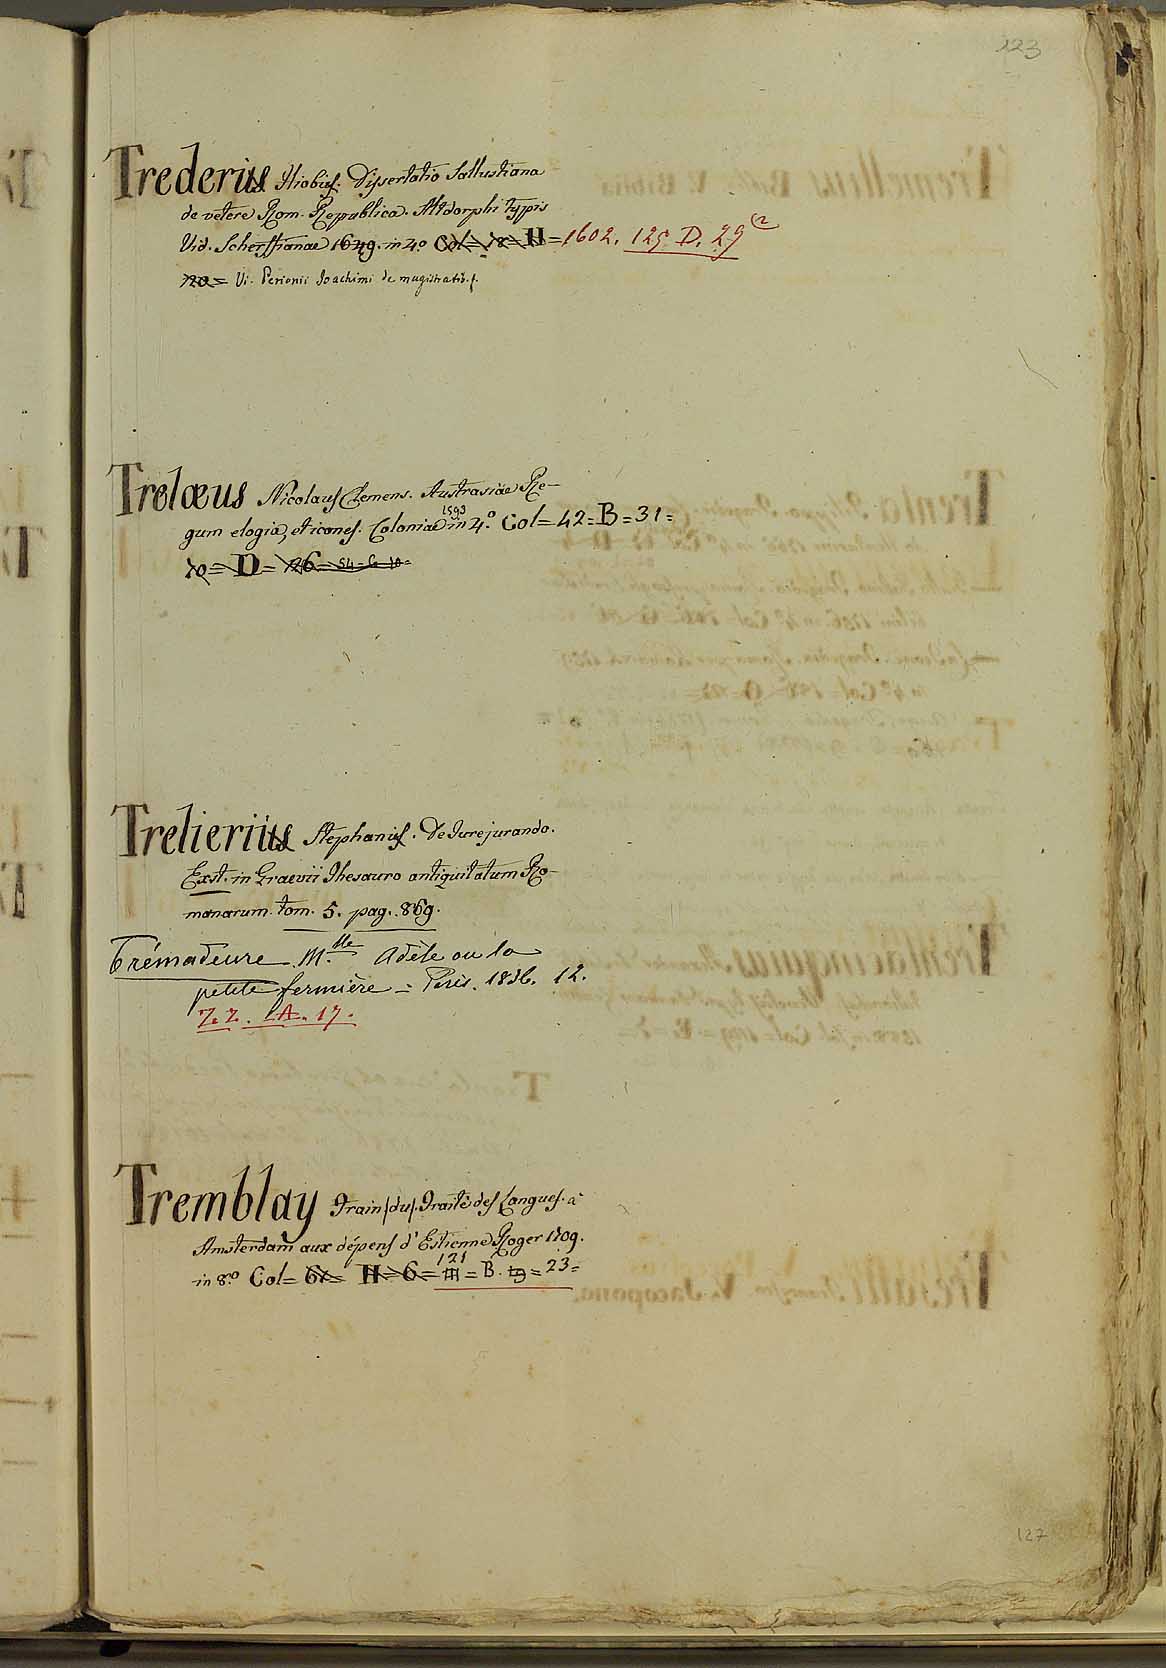 123
Trederius Hiobus. Dissertatio Sallustiana
de vetere Rom. Republica. Altdorphi typis
Vid. Scherffianae 1649. in 4.o Col = 78 = H = 1602. 125. D. 29 (2
120 = Vi. Perionii Joachimi de magistratib.
Trelæus Nicolaus Clemens. Austrasiae Re-
gum elogia, et icones. Coloniae 1593 in 4.o Col = 42 = B = 31 =
10 = D = 126 = 54 - G - 10 =
Trelierius Stephanus. De Jurejurando.
Exst. in Graevii Thesauro antiquitatum Ro-
manarum. tom. 5. pag. 869.
Trémadeure M.lle Adèle ou la
petite fermière = Paris. 1836. 12.
Z.Z. A. 17.
Tremblay Frain (du). Traité des Langues. à
Amsterdam aux dépens d'Estienne Roger 1709.
in 8.o Col = H = 6 = 121 = B. 19 = 23 =
127